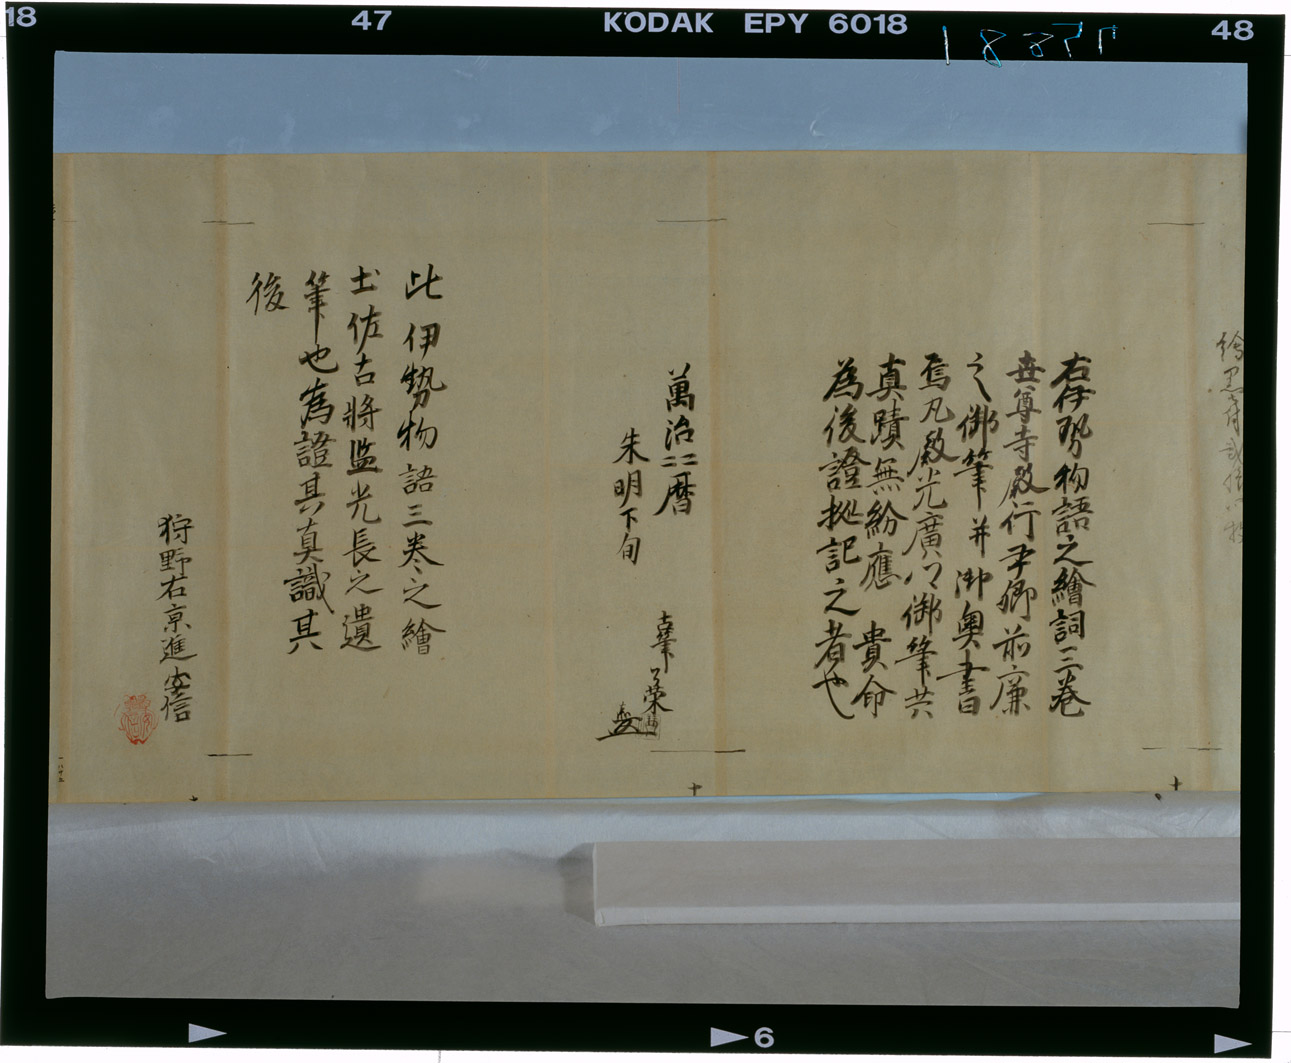 18
47
KODAK EPY 6018
48
右伊勢物語之繪詞三巻
世尊寺殿行尹卿前廉
之御筆并御奥書
焉凡殿光廣公御筆共
真蹟無紛應 貴命
為後證拠記之者也
萬治二暦
朱明下旬
此伊勢物語三巻之繪
土佐古將監光長之遺
筆也為證其真識其
後
狩野右京進安信
6